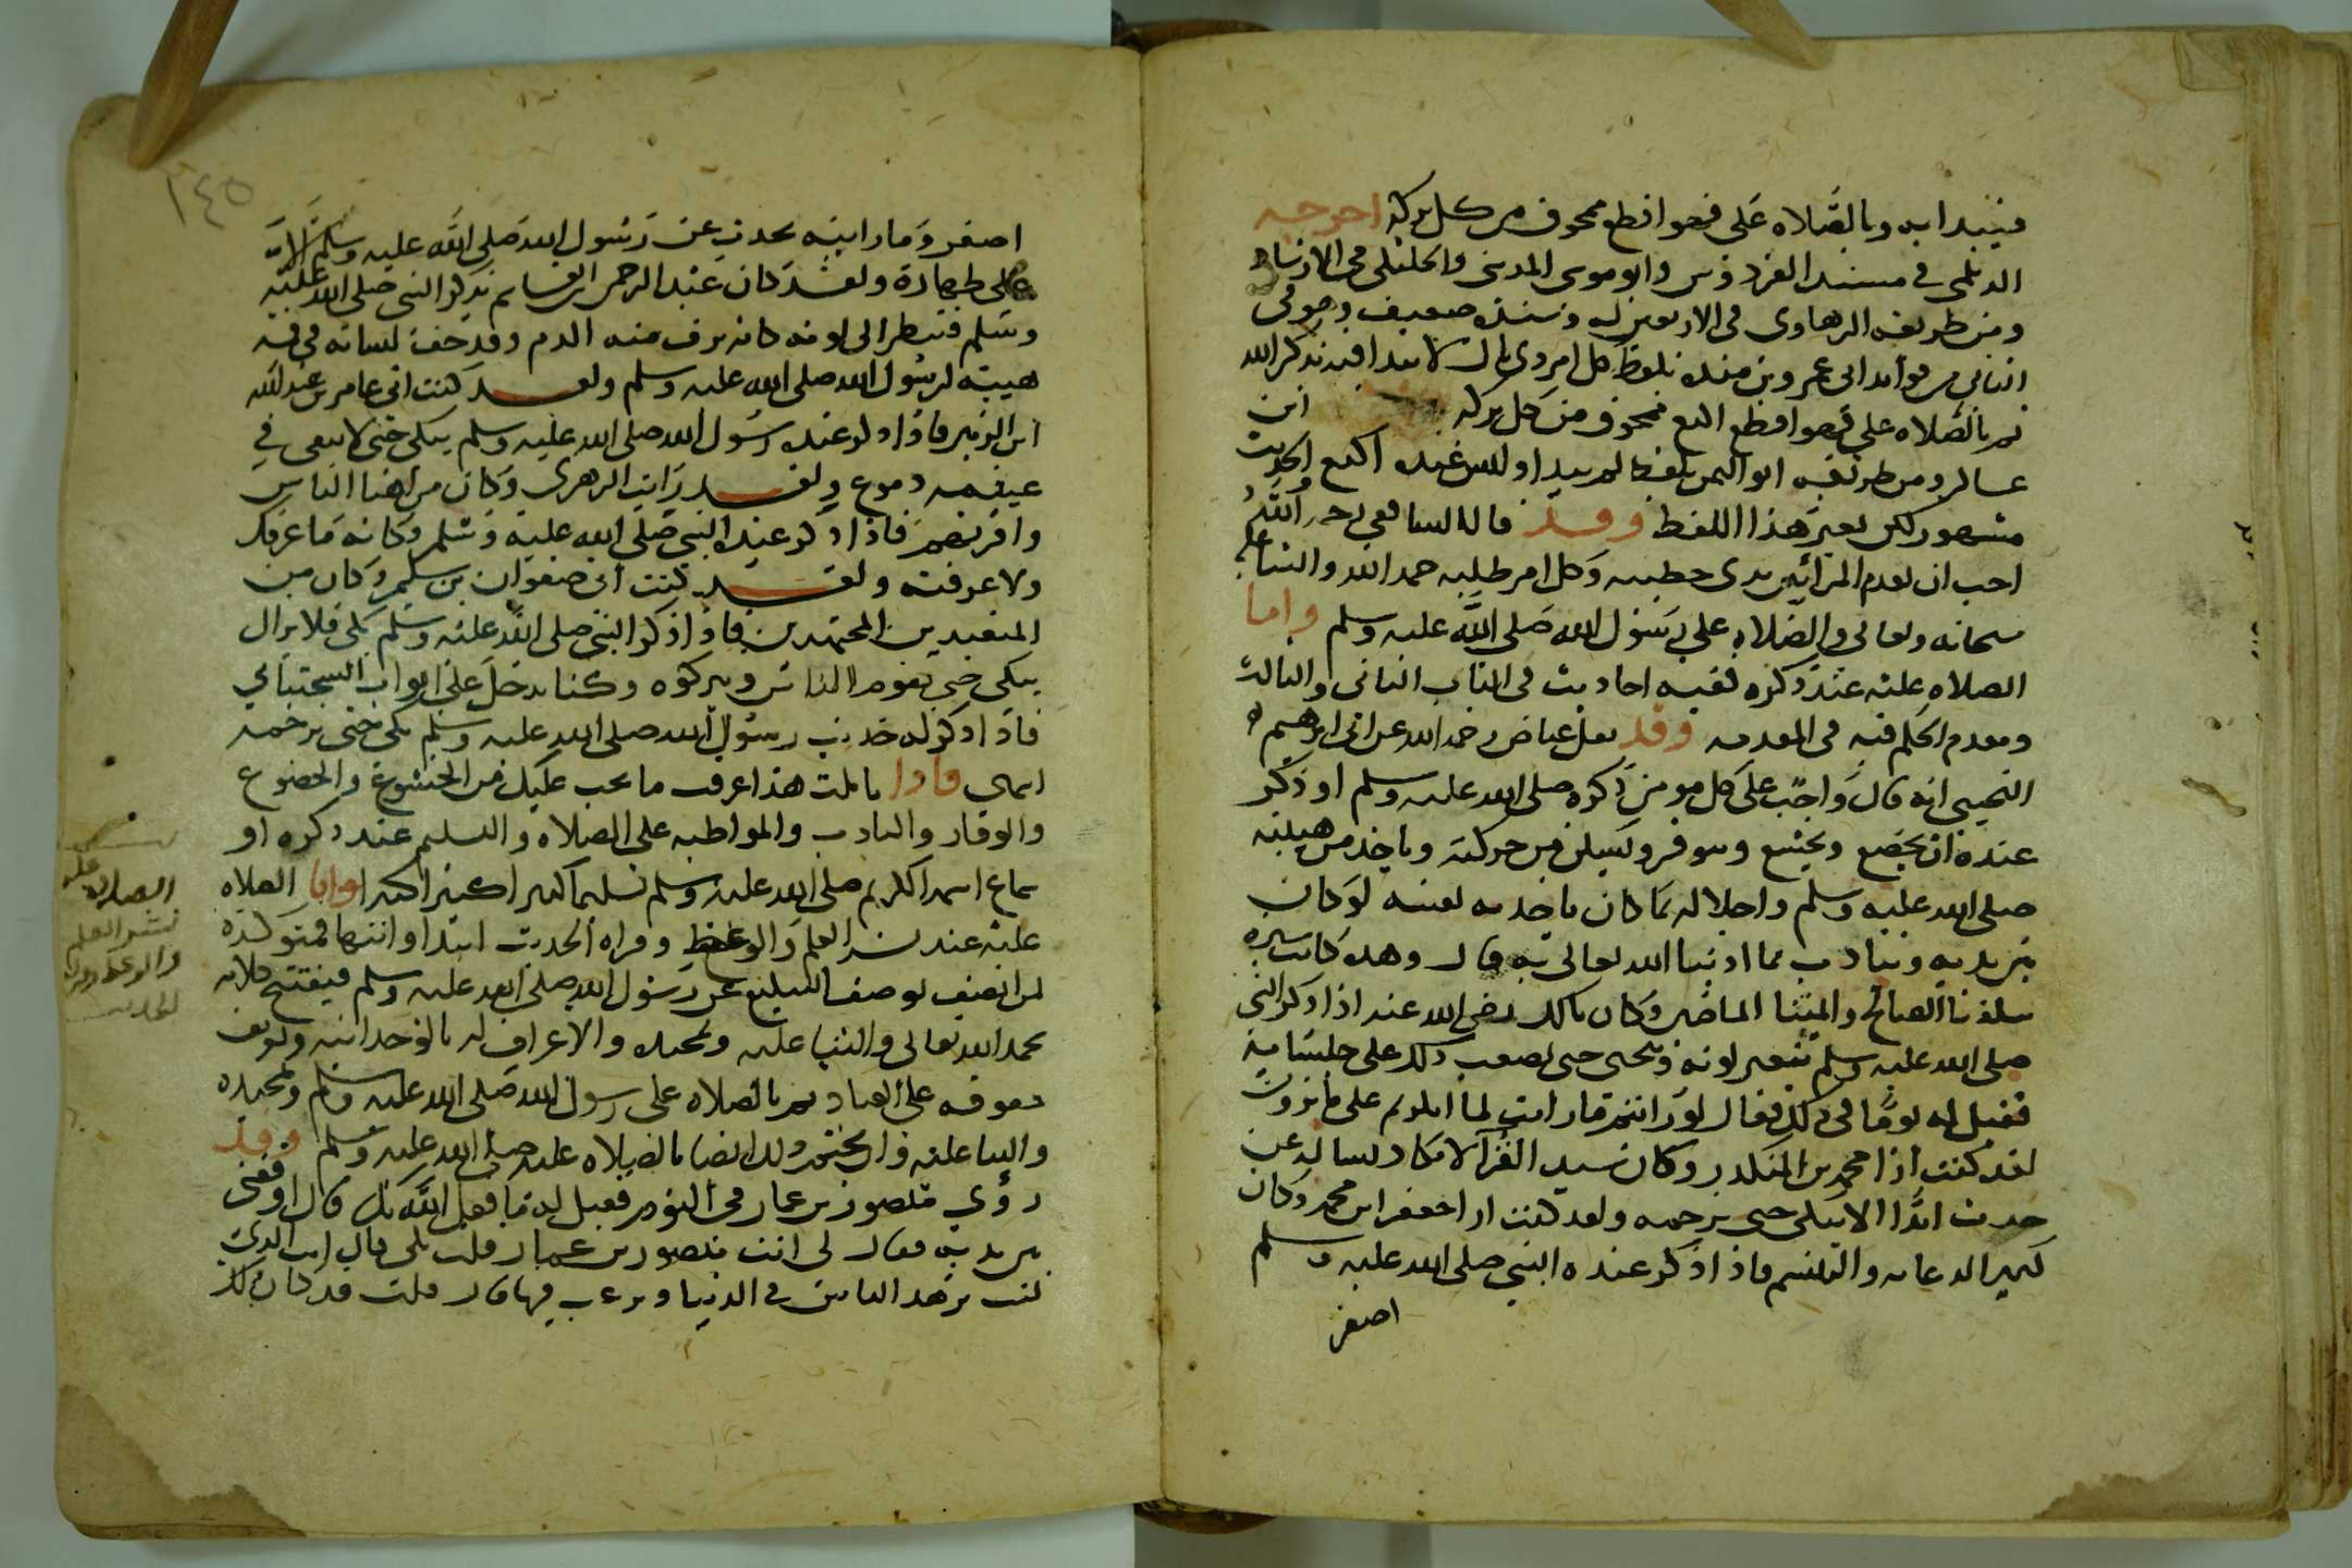 فيبدا به وبالصلاه على فهو اقطع ممحوق من كل بركة اخرجه
الديلمي في مسند الفردوس وابو موسى المديني والخليلي في الارشاد
ومن طريقه الرهاوي في الاربعين له وسنده ضعيف وهو في
الثاني من فوايد ابي عمرو بن منده بلفظ كل امر ذي بال لا يبدا فيه بذكر الله
ثم بالصلاه علي فهو اقطع اكتع ممحوق من كل بركه ابن
قاله الشافعي رحمه الله
مشهور لكن بغير هذا اللفظ وقد قال الشافعي رحمه الله
احب ان يقدم المرء بين يدي خطبته وكل امر طلبه حمد الله والثنا عليه
سبحانه وتعالى والصلاه على رسول الله صلى الله عليه وسلم واما
الصلاه عليه عند ذكره ففيه احاديث في الباب الثاني والثالث
وتقدم الحكم فيه في المقدمه وقد نقل عياض رحمه الله عن ابي ابرهيم
التجيبي انه قال واجب على كل مومن ذكره صلى الله عليه وسلم او ذكر
عنده ان يخضع ويخشع ويتوقر ويسكن من حركته وياخذ من هيبته
صلى الله عليه وسلم واجلاله بما كان ياخذ به نفسه لو كان
بين يديه ويتادب بما ادبنا الله تعالى به قال وهذه كانت سيرة
سلفنا الصالح وايمتنا الماضين وكان مالك رضي الله عنه اذا ذكر النبي
صلى الله عليه وسلم يتغير لونه وينحني حتى يصعب ذلك على جلسايه
فقيل له يوما في ذلك فقال لو رايتم ما رايت لما انكرتم على ما ترون
لقد كنت ارا محمد بن المنكدر وكان سيد القرا لا نكاد نساله عن
حديث ابدا الا يبكي حتى نرحمه ولقد كنت ارا جعفر ابن محمد وكان
كثير الدعابه والتبسم فاذا ذكر عنده النبي صلى الله عليه وسلم
اصفر
١٤٥
اصفر وما رايته يحدث عن رسول الله صلى الله عليه وسلم الا
على طهارة ولقد كان عبد الرحمن ابن القاسم يذكر النبي صلى الله عليه
وسلم فينظر الى لونه كانه نزف منه الدم وقد جف لسانه في فمه
هيبته لرسول الله صلى الله عليه وسلم ولقد كنت اتي عامر بن عبد الله
ابن الزبير فاذا ذكر عنده رسول الله صلى الله عليه وسلم يبكي حتى لا يبقى في
عينيه دموع ولقد رايت الزهري وكان من اهنا الناس
واقربهم فاذا ذكر عنده النبي صلى الله عليه وسلم فكانه ما عرفك
ولا عرفته ولقد كنت اتي صفوان بن سليم وكان من
المتعبدين المجتهدين فاذا ذكر النبي صلى الله عليه وسلم بكى فلا يزال
يبكي حتى يقوم الناس ويتركوه وكنا ندخل على ايوب السختياني
فاذا ذكر له حديث رسول الله صلى الله عليه وسلم بكى حتى نرحمه
انتهى فاذا تاملت هذا عرفت ما يجب عليك من الخشوع والخضوع
والوقار والتادب والمواظبه على الصلاه والتسليم عند ذكره او
سماع اسمه الكريم صلى الله عليه وسلم تسليما كثيرا كثيرا كثيرا واما الصلاه
عليه عند نشر العلم والوعظ وقراه الحديث ابتدا وانتها فمتوكده
لمن اتصف بوصف التبليغ عن رسول الله صلى الله عليه وسلم فيفتتح كلامه
بحمد الله تعالى والثنا عليه وتمجيده والاعتراف له بالوحدانيه وتعريف
حقوقه على العباد ثم بالصلاه على رسول الله صلى الله عليه وسلم وتمجيده
والثنا عليه وان يختم ذلك ايضا بالصلاه عليه صلى الله عليه وسلم وقد
رؤي منصور بن عمار في النوم فقيل له ما فعل الله بك قال اوقفني
بين يديه فقال لي انت منصور بن عمار قلت بلى قال انت الذي
كنت تزهد الناس في الدنيا وترغب فيها قال قلت قد كان ذلك
الصلاة عليه
نشر العلم
والوعظ وقراه
الحديث